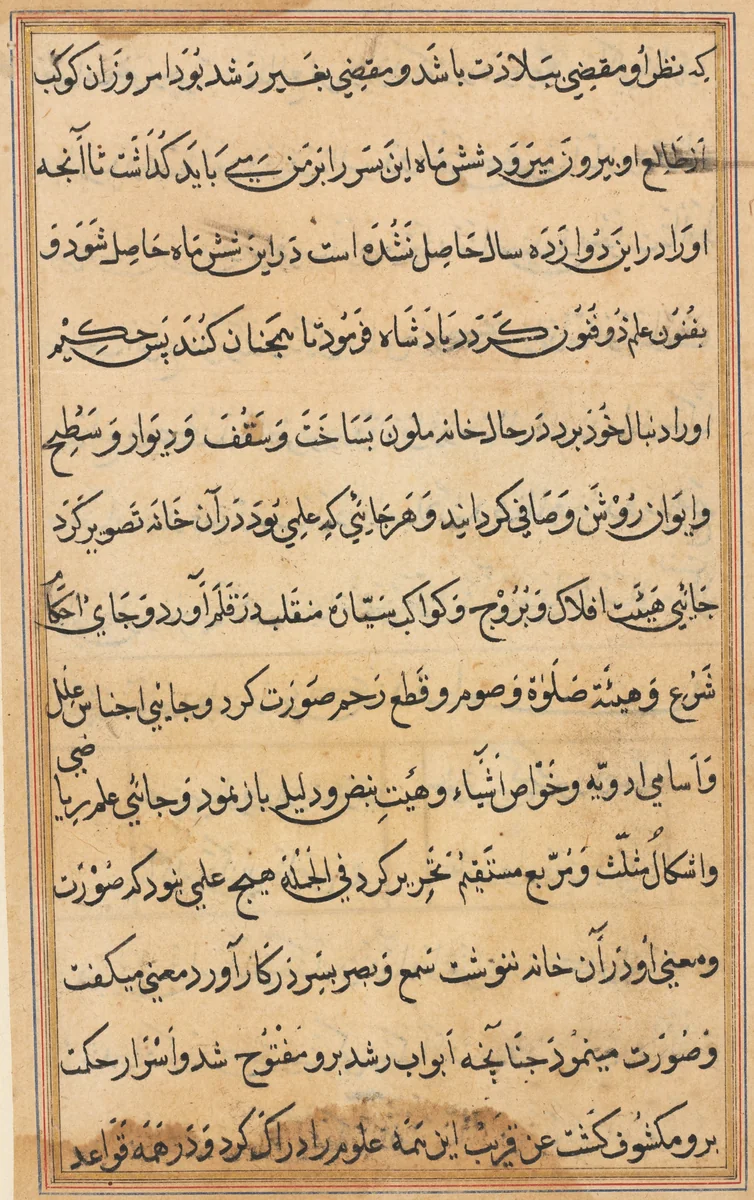 که نظر او مقیضی ببلادت باشد و مقیضی بغیر رشد بود امروز آن کوکب
از طالع او بیرون میرود شش ماه این پسر را بر من می باید گذاشت تا آنچه
او را در این دوازده سال حاصل نشده است در این شش ماه حاصل شود و
بفنون علم ذوفنون کردد بادشاه فرمود تا همجنان کنند پس حکیم
اورا دنبال خود برد در حال خانه ملون بساخت و سقف و دیوار و سطح
و ایوان روشن و صافی کردانید و هر جائی که علمی بود در آن خانه تصویر کرد
جائی هیئت افلاک و بروج و کواکب سیّاره منقلب در قلم آورد و جای احکام
شرع و هیئة صلوة و صوم و قطع رحم صورت کرد و جایی اجناس علل
و اسامی ادویّه و خواص اشیاء و هیت نبض و دلیل باز نمود و جائی علم ریاضی
و اشکال مثلّث و مرّبع مستقیم تحریر کرد فی الجملة هیچ علمی نبود که صورت
و معنی او در آن خانه ننوشت سمع و بصر پسر در کار آورد معنی میکفت
و صورت مینمود جنانچه ابواب رشد برو مفتوح شد و اسرار حکمت
برو مکشوف کشت عن قریب این همه علوم را دراک کرد و در همه قواعد